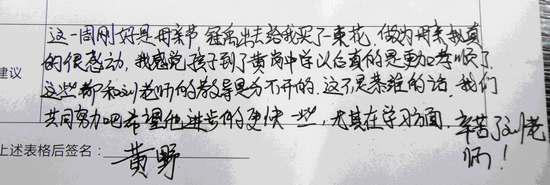 这一周刚好是母亲节 冠禹出去给我买了一束花，做为母亲我真
的很感动，我感觉孩子到了黄岗中学以后真的是更加孝顺了
建议
这些都和刘老师的教导是分不开的，这不是恭维的话，我们
共同努力吧希望他进步的更快一些，尤其在学习方面，辛苦了刘老
师！
上述表格后签名：
黄野